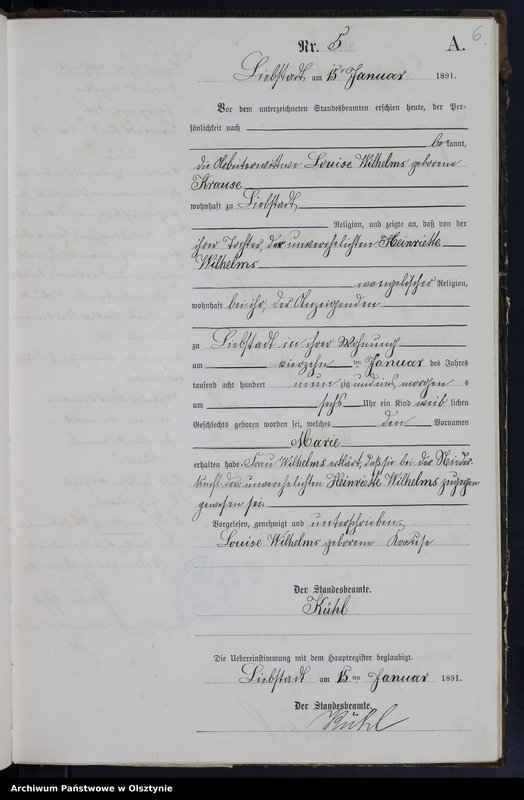 6
Nr. 5 A.
Liebstadt am 15ten Januar 1891.
Vor dem unterzeichneten Standesbeamten erschien heute, der Per-
sönlichkeit nach
bekannt,
die Arbeiterwittwe Louise Wilhelms geborene
Krause
wohnhaft zu Liebstadt
Religion, und zeigte an, daß von der
ihrer Tochter, der unverehelichten Heinriette
Wilhelms
evangelischer Religion,
wohnhaft bei ihr, der Anzeigenden
zu Liebstadt in ihrer Wohnung
am vierzehn ten Januar des Jahres
tausend acht hundert neunzig und eins, morgens
um sechs Uhr ein Kind weiblichen
Geschlechts geboren worden sei, welches den Vornamen
Marie
erhalten habe. Frau Wilhelms erklärt, daß sie bei der Nieder-
kunft der unverehelichten Heinriette Wilhelms zugegen
gewesen sei.
Vorgelesen, genehmigt und unterschrieben
Louise Wilhelms geborene Krause
Der Standesbeamte.
Kühl
Die Uebereinstimmung mit dem Hauptregister beglaubigt.
Liebstadt am 15ten Januar 1891.
Der Standesbeamte.
Kühl
Archiwum Państwowe w Olsztynie